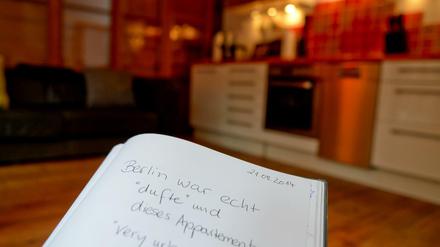 21.09.2014
Berlin war echt
"dufte" und
dieses Appartement
"very